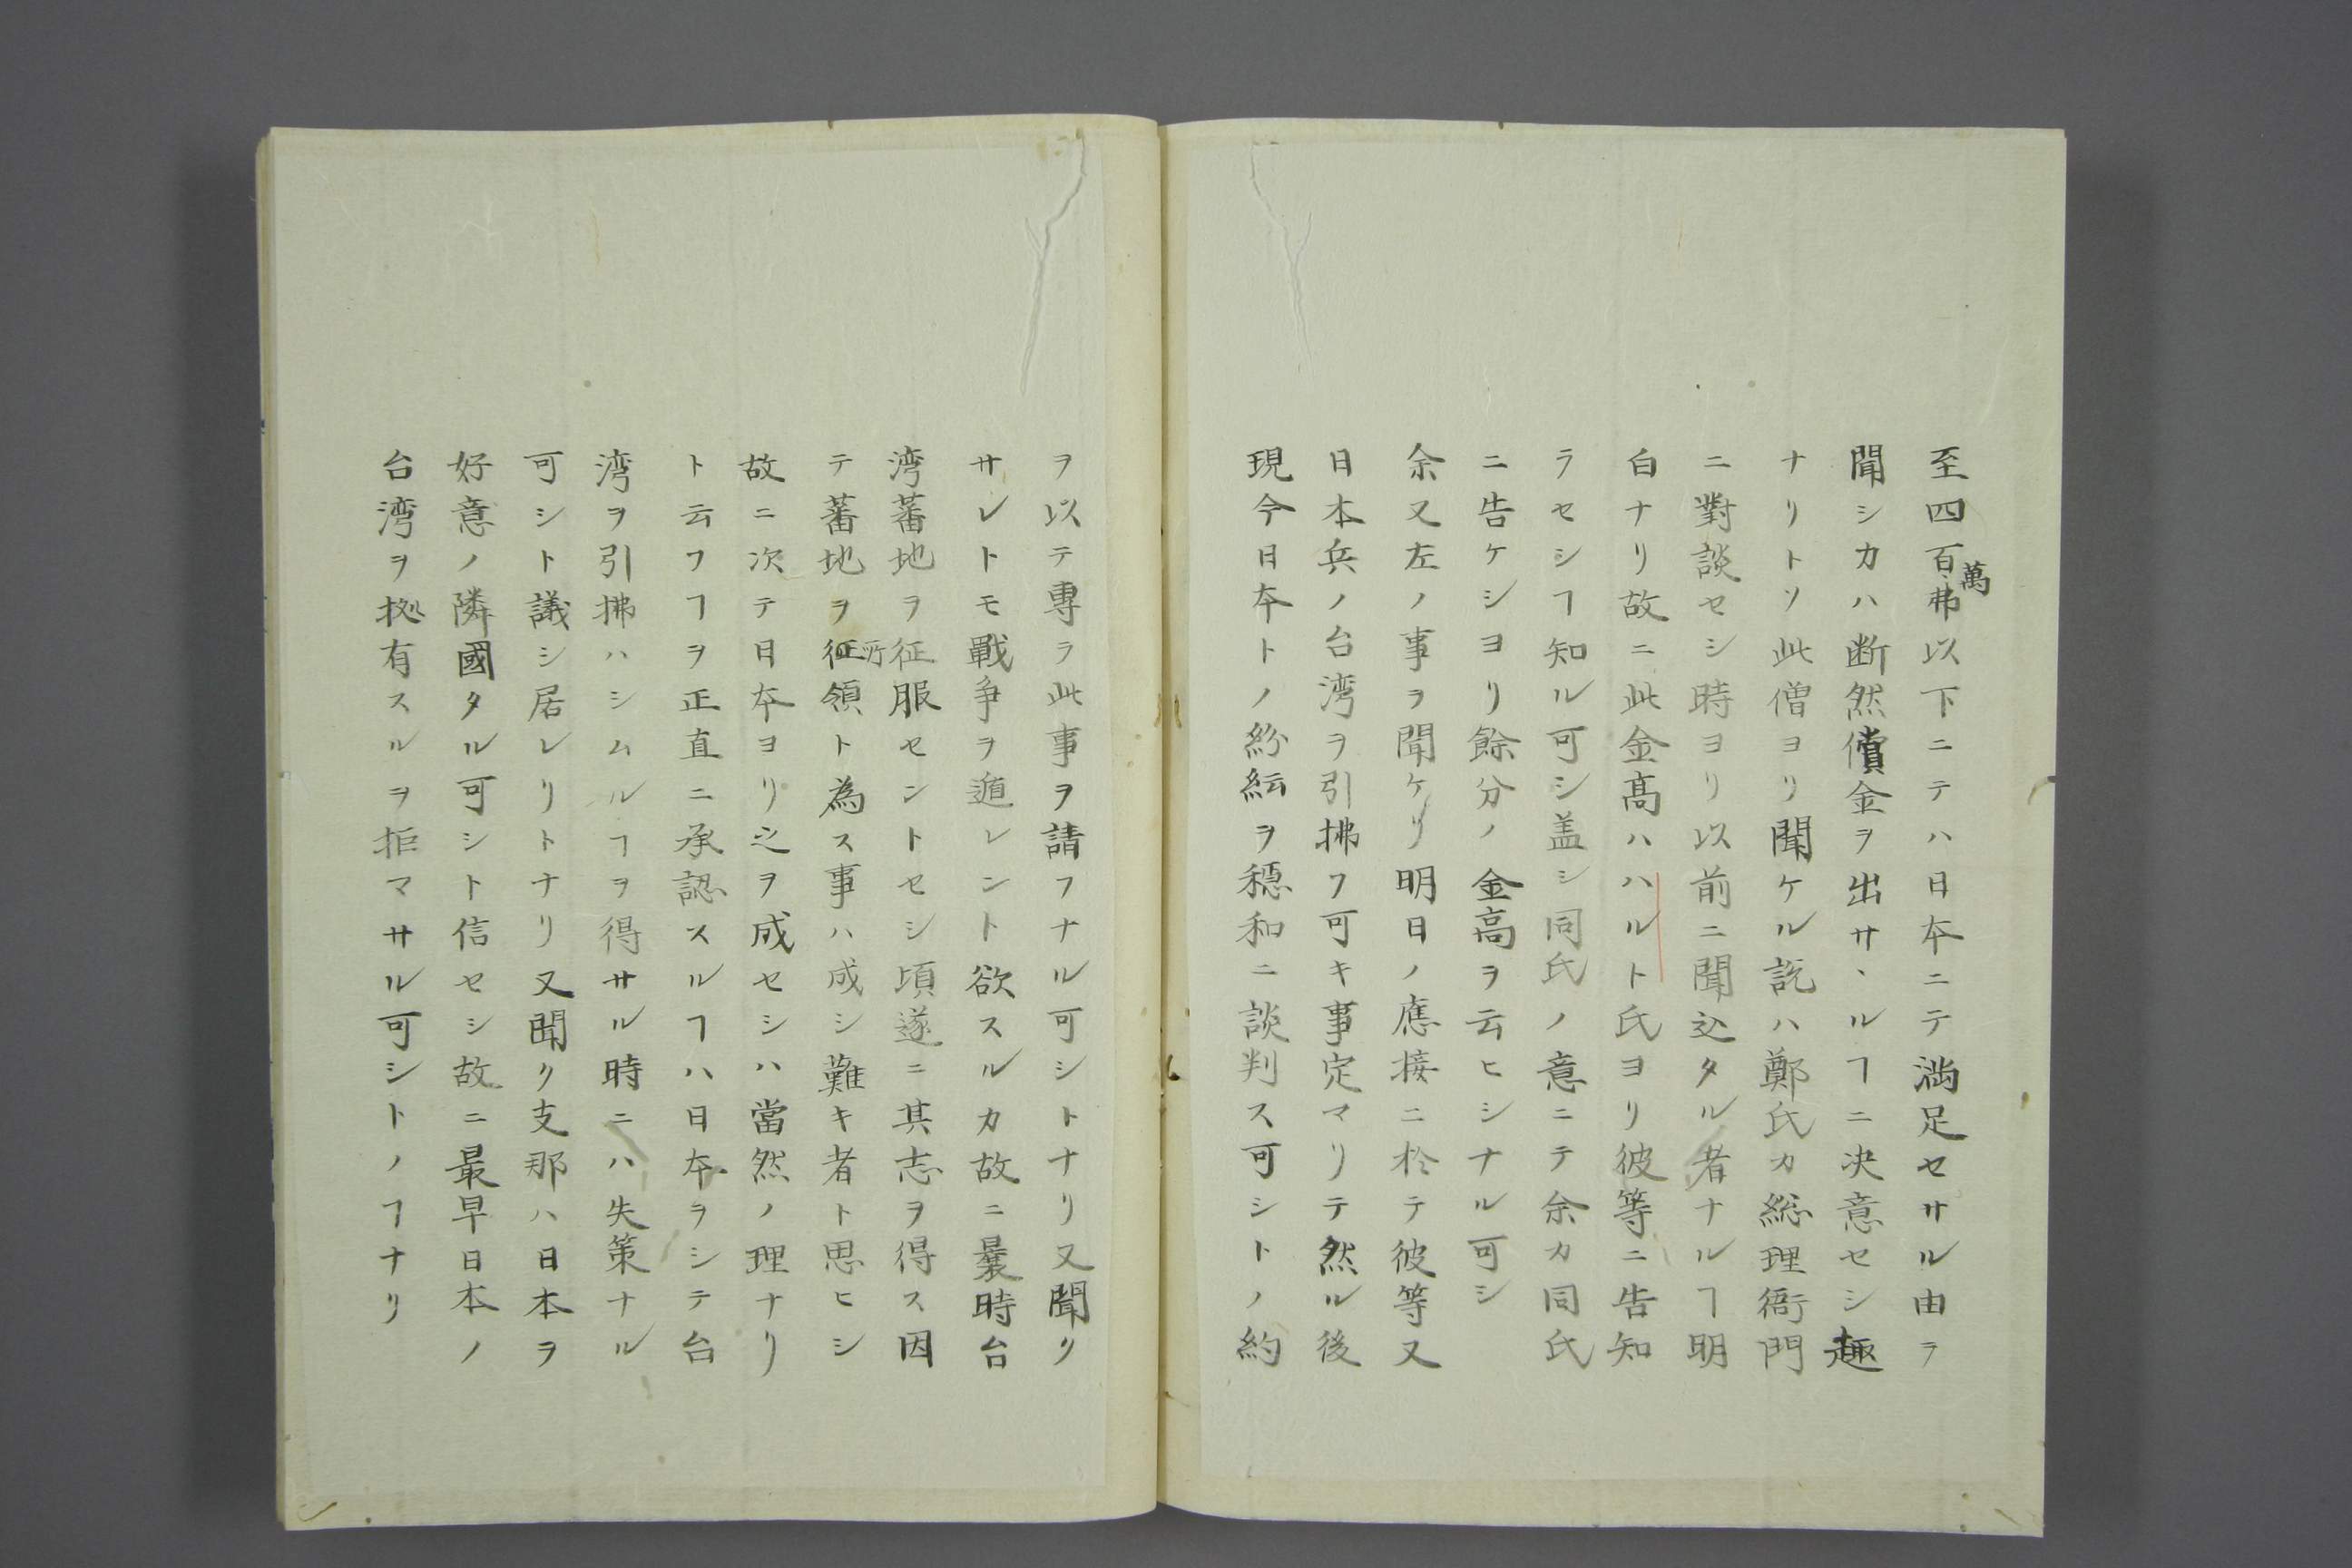 至四百萬弗以下ニテハ日本ニテ満足セサル由ヲ
聞シカハ断然償金ヲ出サヽルヿニ决意セシ趣
ナリトソ此僧ヨリ聞ケル説ハ鄭氏カ総理衙門
ニ對談セシ時ヨリ以前ニ聞込タル者ナルヿ明
白ナリ故ニ此金髙ハハルト氏ヨリ彼等ニ告知
ラセシヿ知ル可シ盖シ同氏ノ意ニテ余カ同氏
ニ告ケシヨリ餘分ノ金高ヲ云ヒシナル可シ
余又左ノ事ヲ聞ケリ明日ノ應接ニ於テ彼等又
日本兵ノ台湾ヲ引拂フ可キ事定マリテ然ル後
現今日本トノ紛紜ヲ穏和ニ談判ス可シトノ約
ヲ以テ專ラ此事ヲ請フナル可シトナリ又聞ク
サレトモ戰争ヲ遁レント欲スルカ故ニ曩時台
湾蕃地ヲ征服セントセシ頃遂ニ其志ヲ得ス因
テ蕃地ヲ征領ト為ス事ハ成シ難キ者ト思ヒシ
所
故ニ次テ日本ヨリ之ヲ成セシハ當然ノ理ナリ
ト云フヿヲ正直ニ承認スルヿハ日本ヲシテ台
湾ヲ引拂ハシムルヿヲ得サル時ニハ失策ナル
可シト議シ居レリトナリ又聞ク支那ハ日本ヲ
好意ノ隣國タル可シト信セシ故ニ最早日本ノ
台湾ヲ拠有スルヲ拒マサル可シトノヿナリ